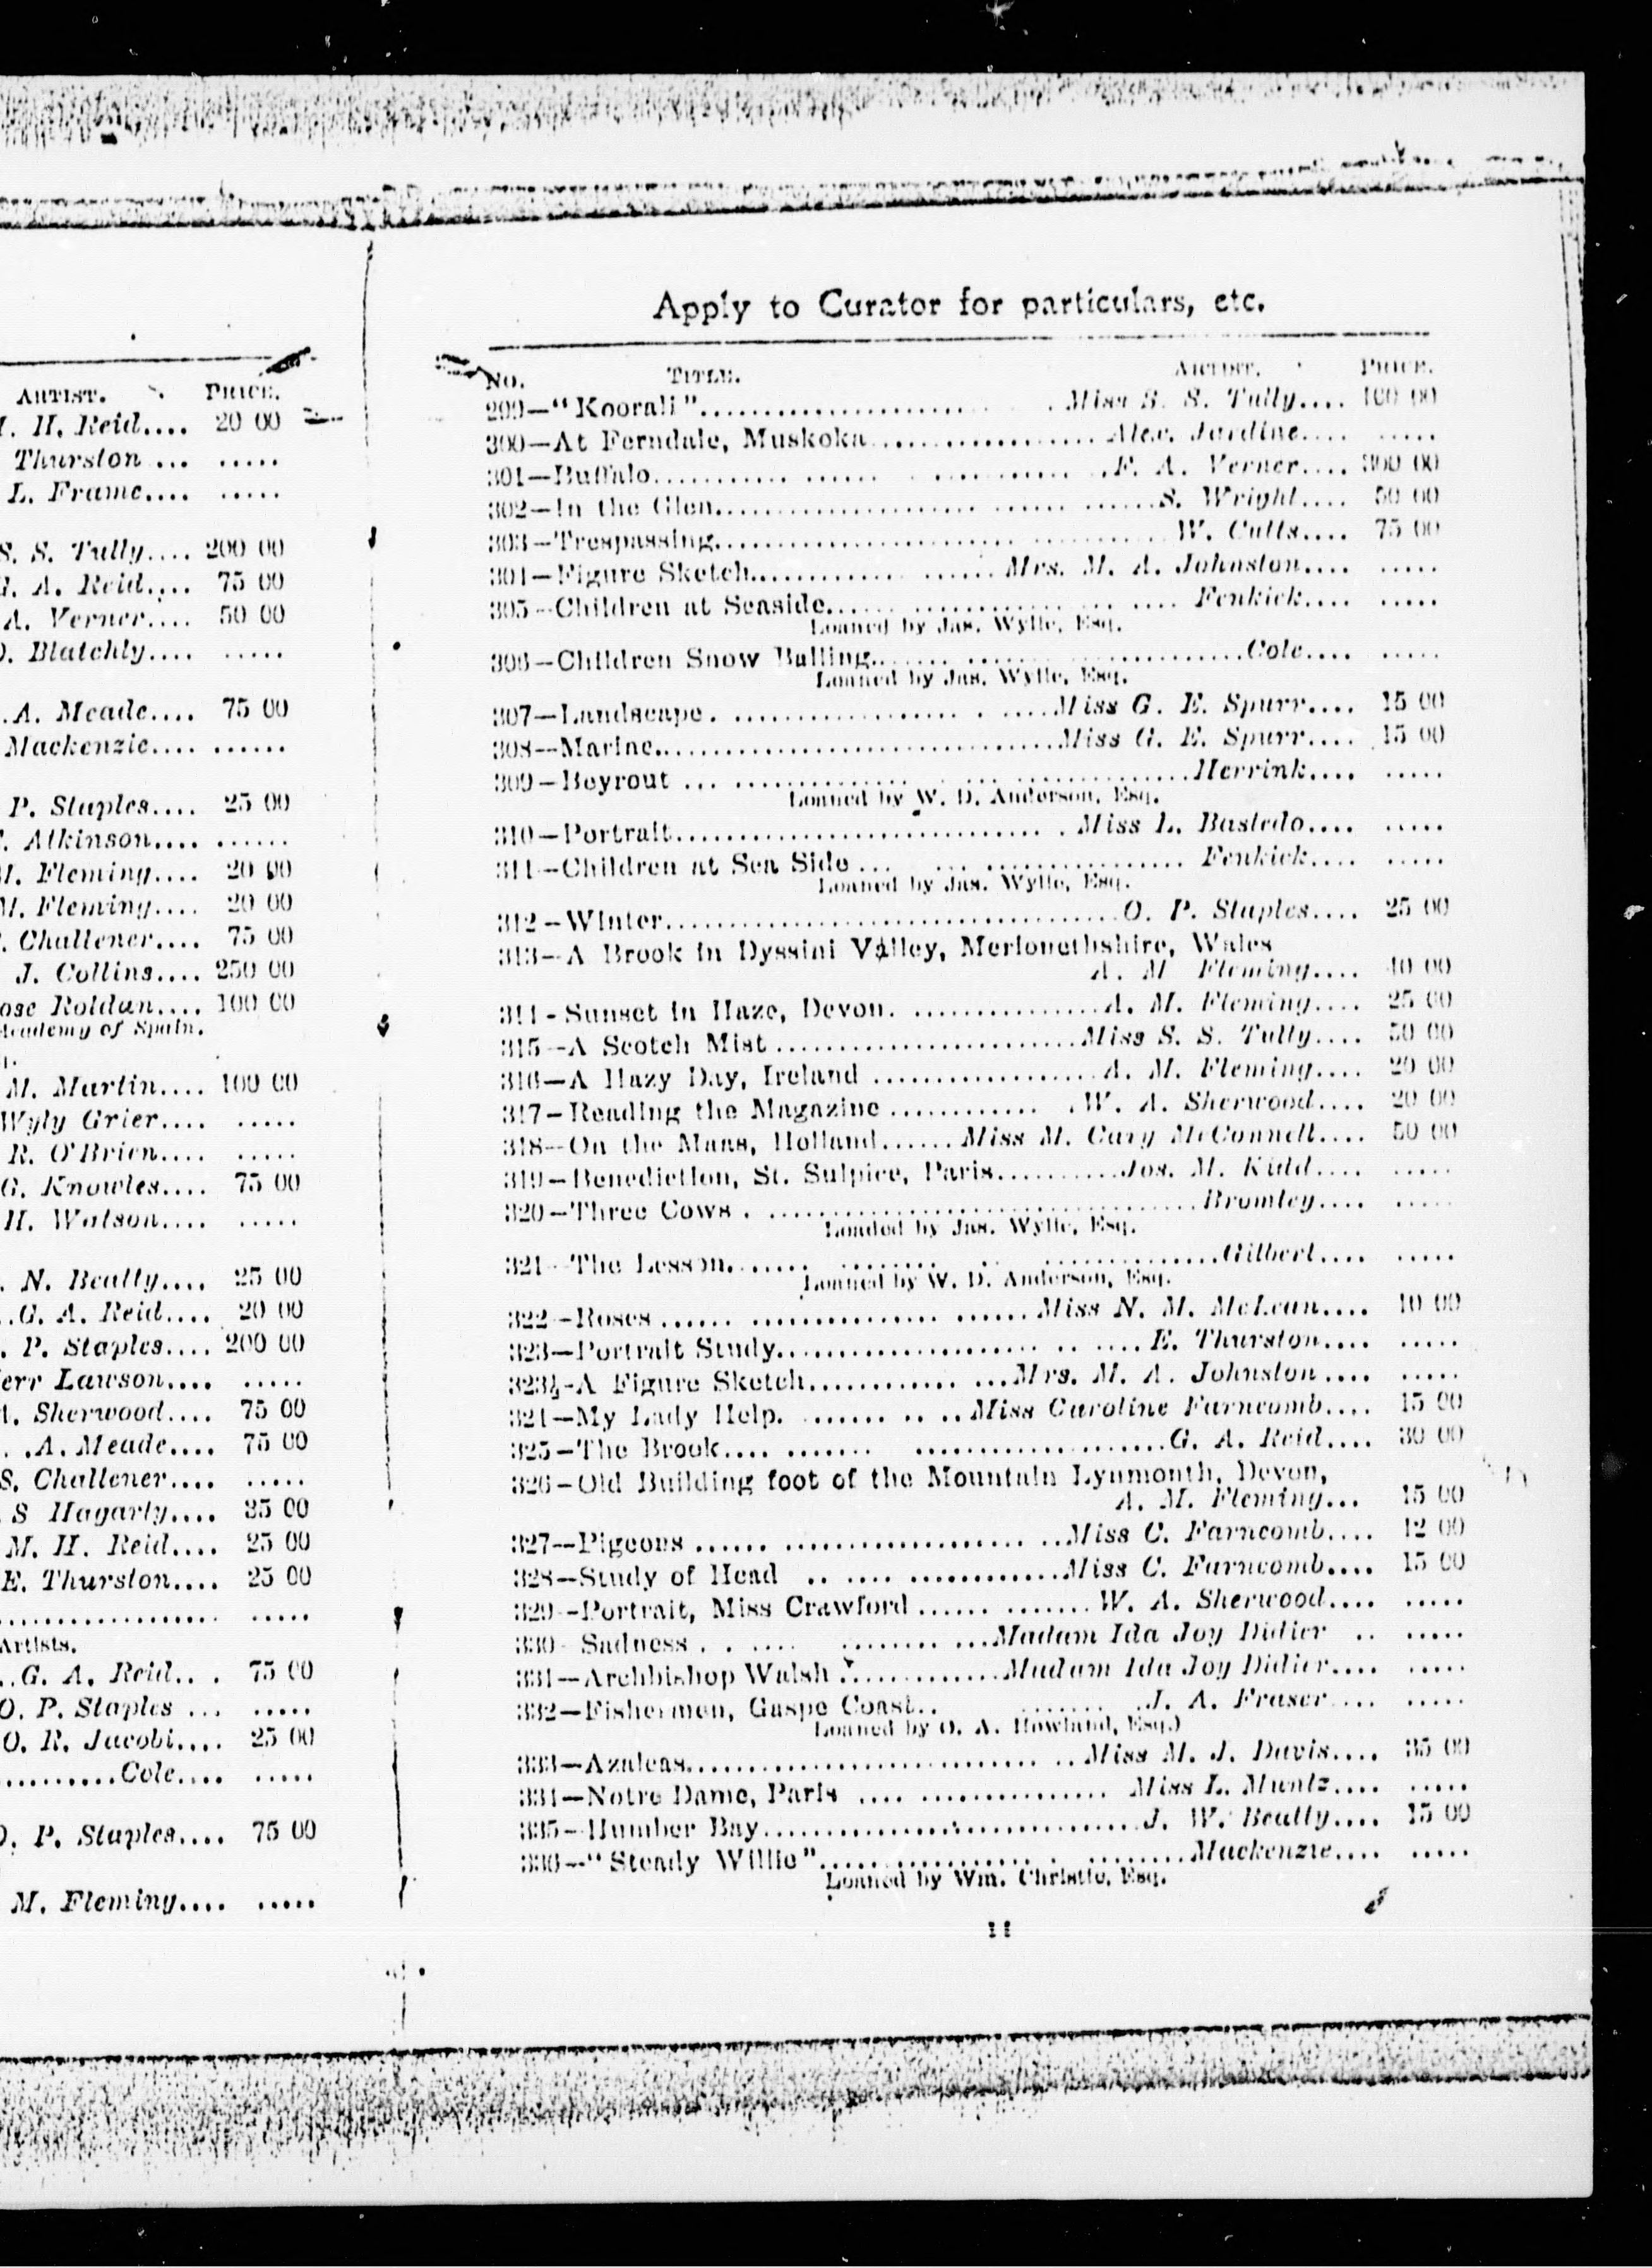 ARTIST. PRICE.
H. Reid.... 20 00
Thurston ... .....
L. Frame.... .....
S. S. Tully.... 200 00
G. A. Reid.... 75 00
A. Verner.... 50 00
Blatchly.... .....
A. Meade.... 75 00
Mackenzie.... ......
P. Staples.... 25 00
Atkinson.... ......
M. Fleming.... 20 00
M. Fleming.... 20 00
Challener.... 75 00
J. Collins.... 250 00
ose Roldan.... 100 00
Academy of Spain.
M. Martin.... 100 00
Wyly Grier.... .....
R. O'Brien.... .....
G. Knowles.... 75 00
H. Watson.... .....
N. Beatty.... 25 00
..G. A. Reid.... 20 00
P. Staples.... 200 00
err Lawson.... .....
A. Sherwood.... 75 00
. .A. Meade.... 75 00
S. Challener.... .....
S Hagarty.... 35 00
M. H. Reid.... 25 00
E. Thurston.... 25 00
.................. .....
Artists.
..G. A. Reid.. . 75 00
O. P. Staples ... .....
O. R. Jacobi.... 25 00
..........Cole.... .....
O. P. Staples.... 75 00
M. Fleming.... .....
Apply to Curator for particulars, etc.
No. TITLE. ARTIST. PRICE.
299—"Koorali"...................... .Miss S. S. Tully.... 100 00
300—At Ferndale, Muskoka.................. Alex. Jardine.... .....
301—Buffalo........... ...... ............F. A. Verner.... 300 00
302—In the Glen...................... ...... ......S. Wright.... 50 00
303—Trespassing........................ ...........W. Cutts.... 75 00
304—Figure Sketch............. ......Mrs. M. A. Johnston.... .....
305—Children at Seaside...... ............... ... .... Fenkick.... .....
Loaned by Jas. Wylie, Esq.
306—Children Snow Balling....... ......................Cole.... .....
Loaned by Jas. Wylie, Esq.
307—Landscape. .................. . ....Miss G. E. Spurr.... 15 00
308—Marine................................Miss G. E. Spurr.... 15 00
309—Beyrout ... ....................................Herrink.... .....
Loaned by W. D. Anderson, Esq.
310—Portrait.............................. .Miss L. Bastedo.... .....
311—Children at Sea Side ... ... ................ Fenkick.... .....
Loaned by Jas. Wylie, Esq.
312—Winter.....................................O. P. Staples.... 25 00
313—A Brook in Dyssini Valley, Merionethshire, Wales
A. M Fleming.... 40 00
314-Sunset in Haze, Devon. ................A. M. Fleming.... 25 00
315—A Scotch Mist ........................Miss S. S. Tully.... 50 00
316—A Hazy Day, Ireland ..................A. M. Fleming.... 20 00
317—Reading the Magazine ............ .W. A. Sherwood.... 20 00
318—On the Maas, Holland......Miss M. Cary McConnell.... 50 00
319—Benediction, St. Sulpice, Paris..........Jos. M. Kidd.... .....
320—Three Cows . ...................................Bromley.... .....
Loaded by Jas. Wylie, Esq.
321—The Lesson....... ........ .. ..............Gilbert.... .....
Loaned by W. D. Anderson, Esq.
322—Roses ...... ............... ......Miss N. M. McLean.... 10 00
323—Portrait Study..................... .. ....E. Thurston.... .....
323½-A Figure Sketch............ ...Mrs. M. A. Johnston .... .....
324—My Lady Help. ....... .. ..Miss Caroline Farncomb.... 15 00
325—The Brook.... ....... ....................G. A. Reid.... 30 00
326—Old Building foot of the Mountain Lynmonth, Devon,
A. M. Fleming... 15 00
327—Pigeons ...... ................... ..Miss C. Farncomb.... 12 00
328—Study of Head .. .... ............Miss C. Farncomb.... 15 00
329—Portrait, Miss Crawford ...... .......W. A. Sherwood.... .....
330—Sadness . . .... ........ ...Madam Ida Joy Didier .. .....
331—Archbishop Walsh .............Madam Ida Joy Didier.... .....
332—Fishermen, Gaspe Coast.. ........J. A. Fraser.... .....
Loaned by O. A. Howland, Esq.)
333—Azaleas............................ ..Miss M. J. Davis.... 35 00
334—Notre Dame, Paris .... ............... Miss L. Muntz.... .....
335—Humber Bay...............................J. W. Beatty.... 15 00
336—"Steady Willie"................... . ........Mackenzie.... .....
Loaned by Wm. Christie, Esq.
11